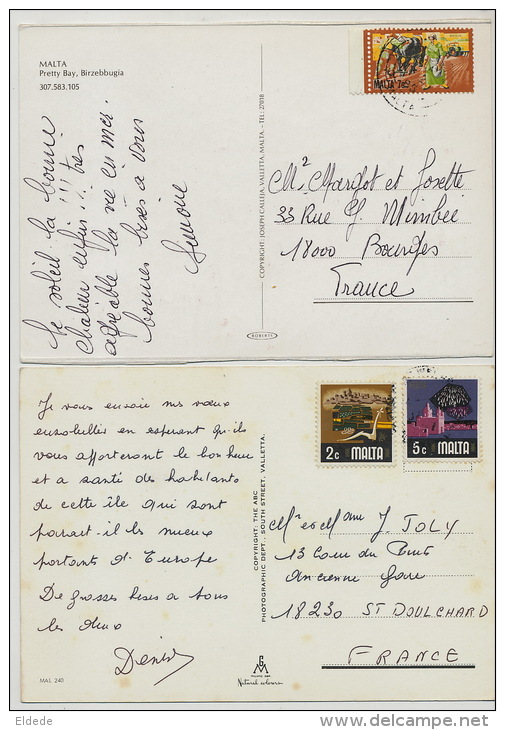 MALTA
Pretty Bay, Birzebbugia
307.583.105
le soleil la bonne
chaleur enfin !!! très
agréable la vie en mer.
bonnes bises à vous
Simone
COPYRIGHT: JOSEPH CALLEJA, VALLETTA, MALTA - TEL: 27018
ROBERTS
MALTA 7c
MALTA
Margot et Josette
33 Rue
18000 Bourges
France
Je vous envoie mes vœux
ensoleillés en espérant qu'ils
vous apporteront le bonheur
et a santé des habitants
de cette île qui sont
parait-il les mieux
portants d'Europe
De grosses bises à tous
les deux
Denise
MAL 240
COPYRIGHT: THE ABC
PHOTOGRAPHIC DEPT. SOUTH STREET, VALLETTA.
Natural colours
2c MALTA
5c MALTA
Mr et Mme J. JOLY
13 Cour du
Ancienne Gare
18230 ST DOULCHARD
FRANCE
Eldede
www.delcampe.net